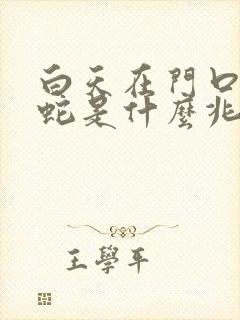 白天在門口
蛇是什麼兆
王學平